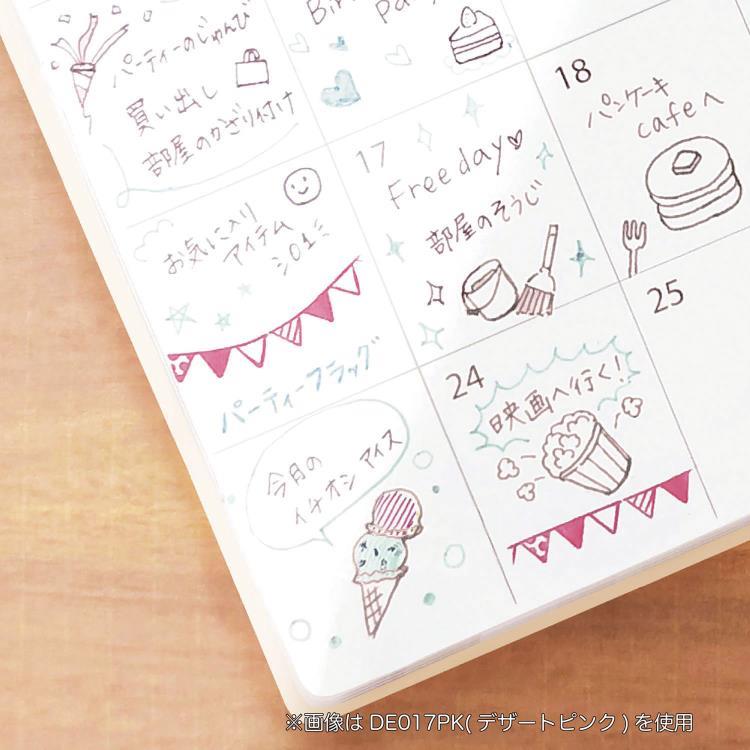 パーティーのじゅんび
買い出し
部屋のかざり付け
お気に入り
アイテム
01
パーティーフラッグ
今月の
イチオシ アイス
17
Free day
部屋のそうじ
24
映画へ行く!
18
パンケーキ
cafeへ
25
※画像は DE017PK(デザートピンク)を使用